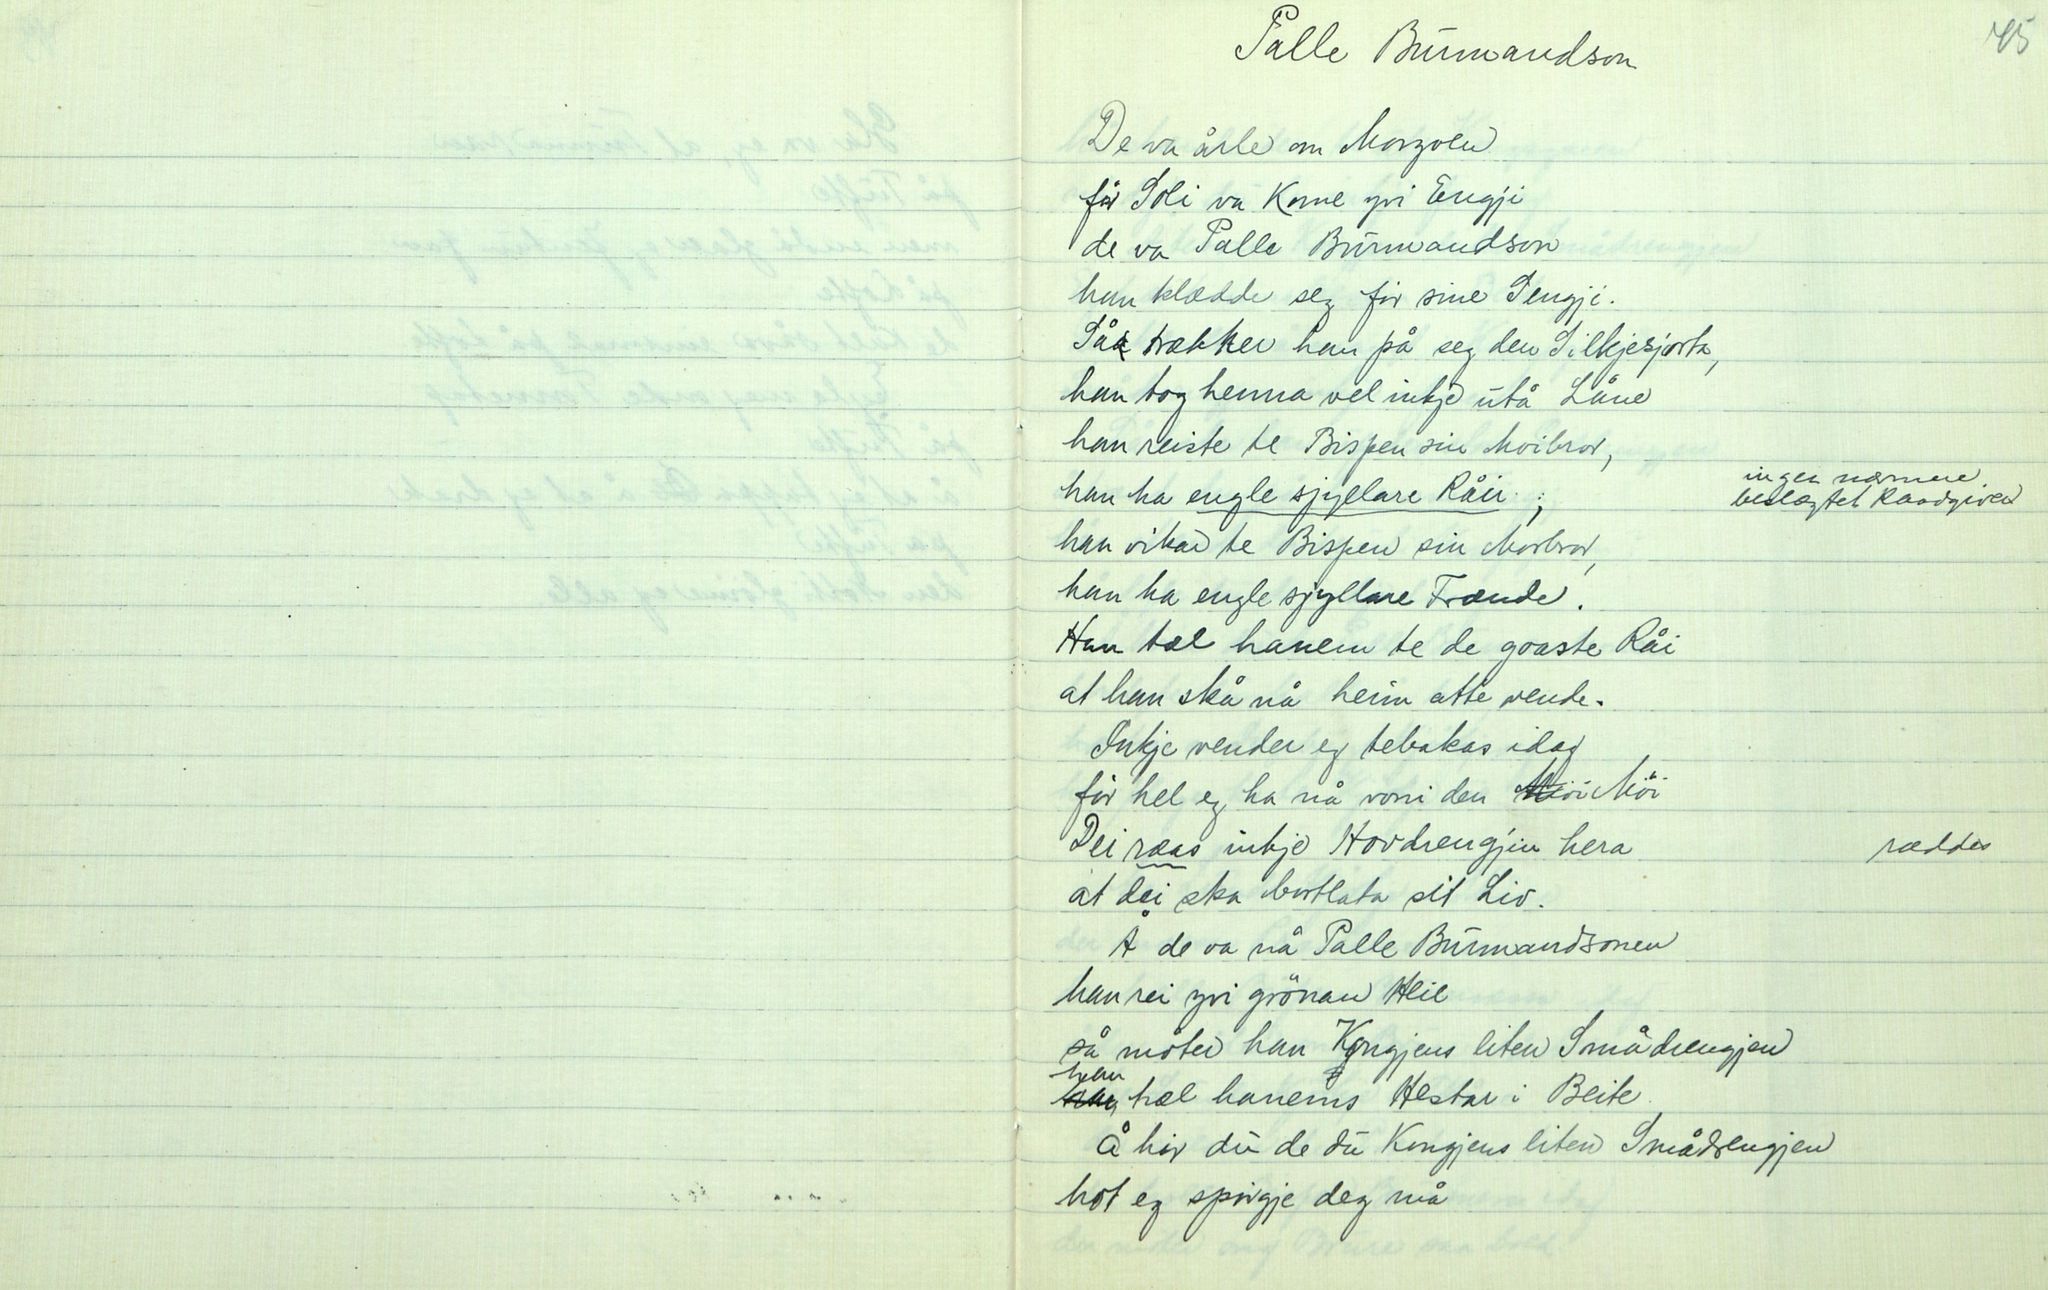 45
Palle Burmandson
De va årle om Morgolen
får Soli va Kome yvi Engji
de va Palle Burmandson
han klædde seg får sine Sengji.
Så trækker han på seg den Silkjesjorta,
han tog henna vel inkje utå Låne
han reiste te Bispen sin Moibror,
han ha engle sjyllare Råir ;
ingen nærmere
beslægtet Raadgiver
han vikar te Bispen sin Morbror,
han ha engle sjyllare Frænde.
Han tæl hanem te de goaste Råi
at han skå nå heim atte vende.
Inkje vender eg tebakas idag
får hel eg ha nå vonni den Möi
Dei ræas inkje Hovdrengjin hera
ræddes
at dei ska bortlata sit Liv.
Å de va nå Palle Burmandsonen
han rei yvi grönan Heie
så möter han Kongjens liten Smådrengjen
han tæl hanems Hestar i Beite
Å hör du de du Kongjens liten Smådrengjen
hot eg spörgje deg må